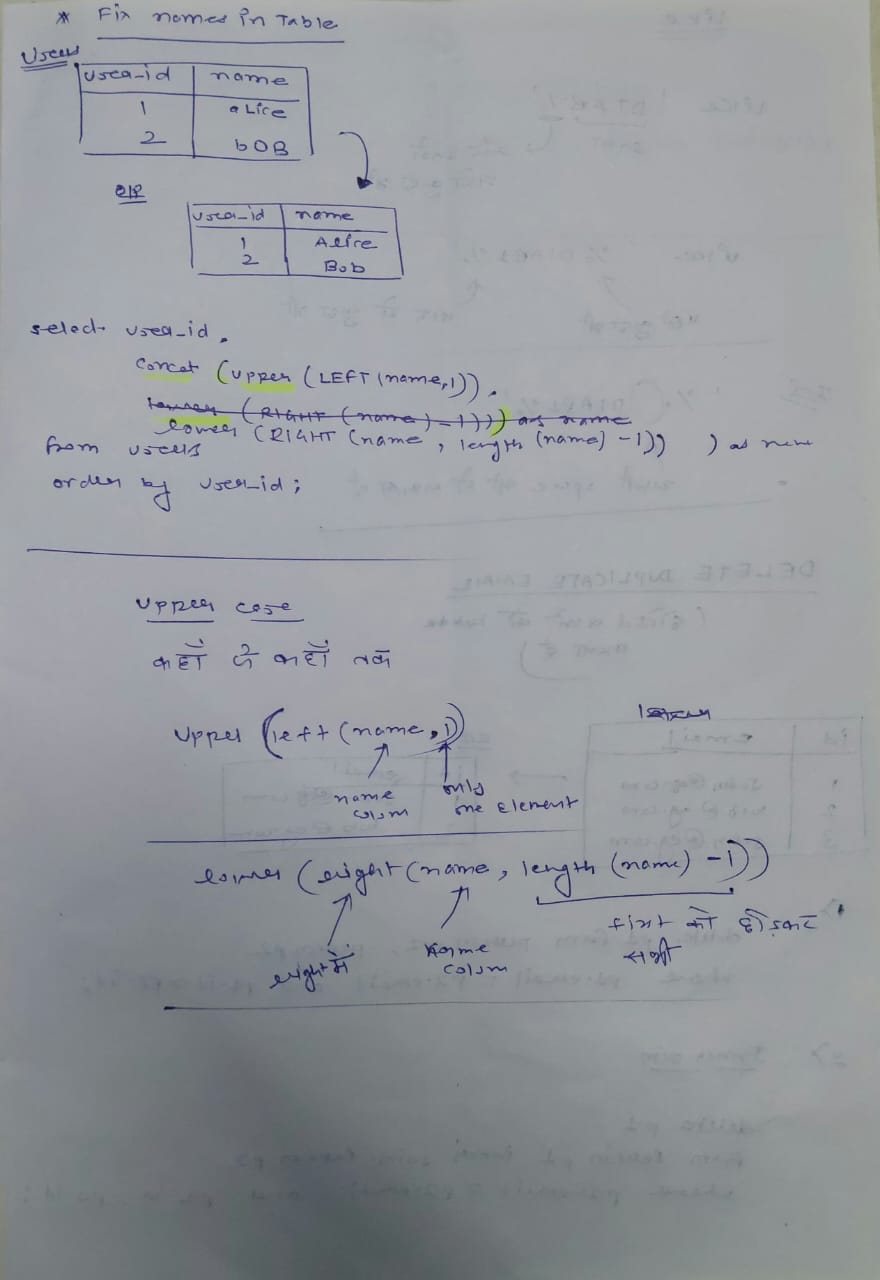 * Fix names in Table
Users
user_id name
1 aLice
2 bOB
O/P
user_id name
1 Alice
2 Bob
select user_id,
concat (upper (LEFT (name,1)),
lower (RIGHT (name) - 1))) as name
lower (RIGHT (name, length (name) -1)) ) as
from users
order by user_id;
Upper case
कहाँ से कहाँ तक
Upper (left (name, 1))
name only
colum one Element
lower (right (name, length (name) -1))
first को छोड़कर
right में name सभी
colum